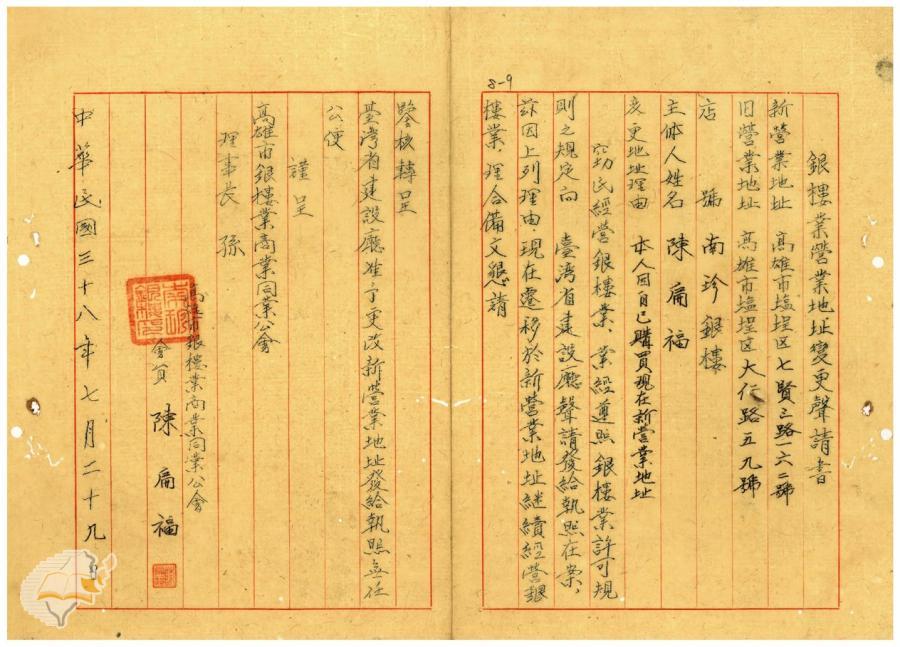 8-9
銀樓業營業地址變更聲請書
新營業地址 高雄市塩埕区七賢三路一六二號
旧營業地址 高雄市塩埕区大仁路五九號
店 號 南珍銀樓
主体人姓名 陳扁福
変更地址理由 本人因自己購買現在新營業地址
窃民經營銀樓業、業經遵照銀樓業許可規
則之規定向 臺湾省建設廳聲請發給執照在案，
茲因上列理由，現在遷移於新營業地址継續經營銀
樓業，理合備文懇請
鑒核轉呈
臺灣省建設廳准予更改新營業地址發給執照無任
公便
謹呈
高雄市銀樓業商業同業公會
理事長 孫
高雄市銀樓業商業同業公會
會員 陳扁福
中華民國三十八年七月二十九日